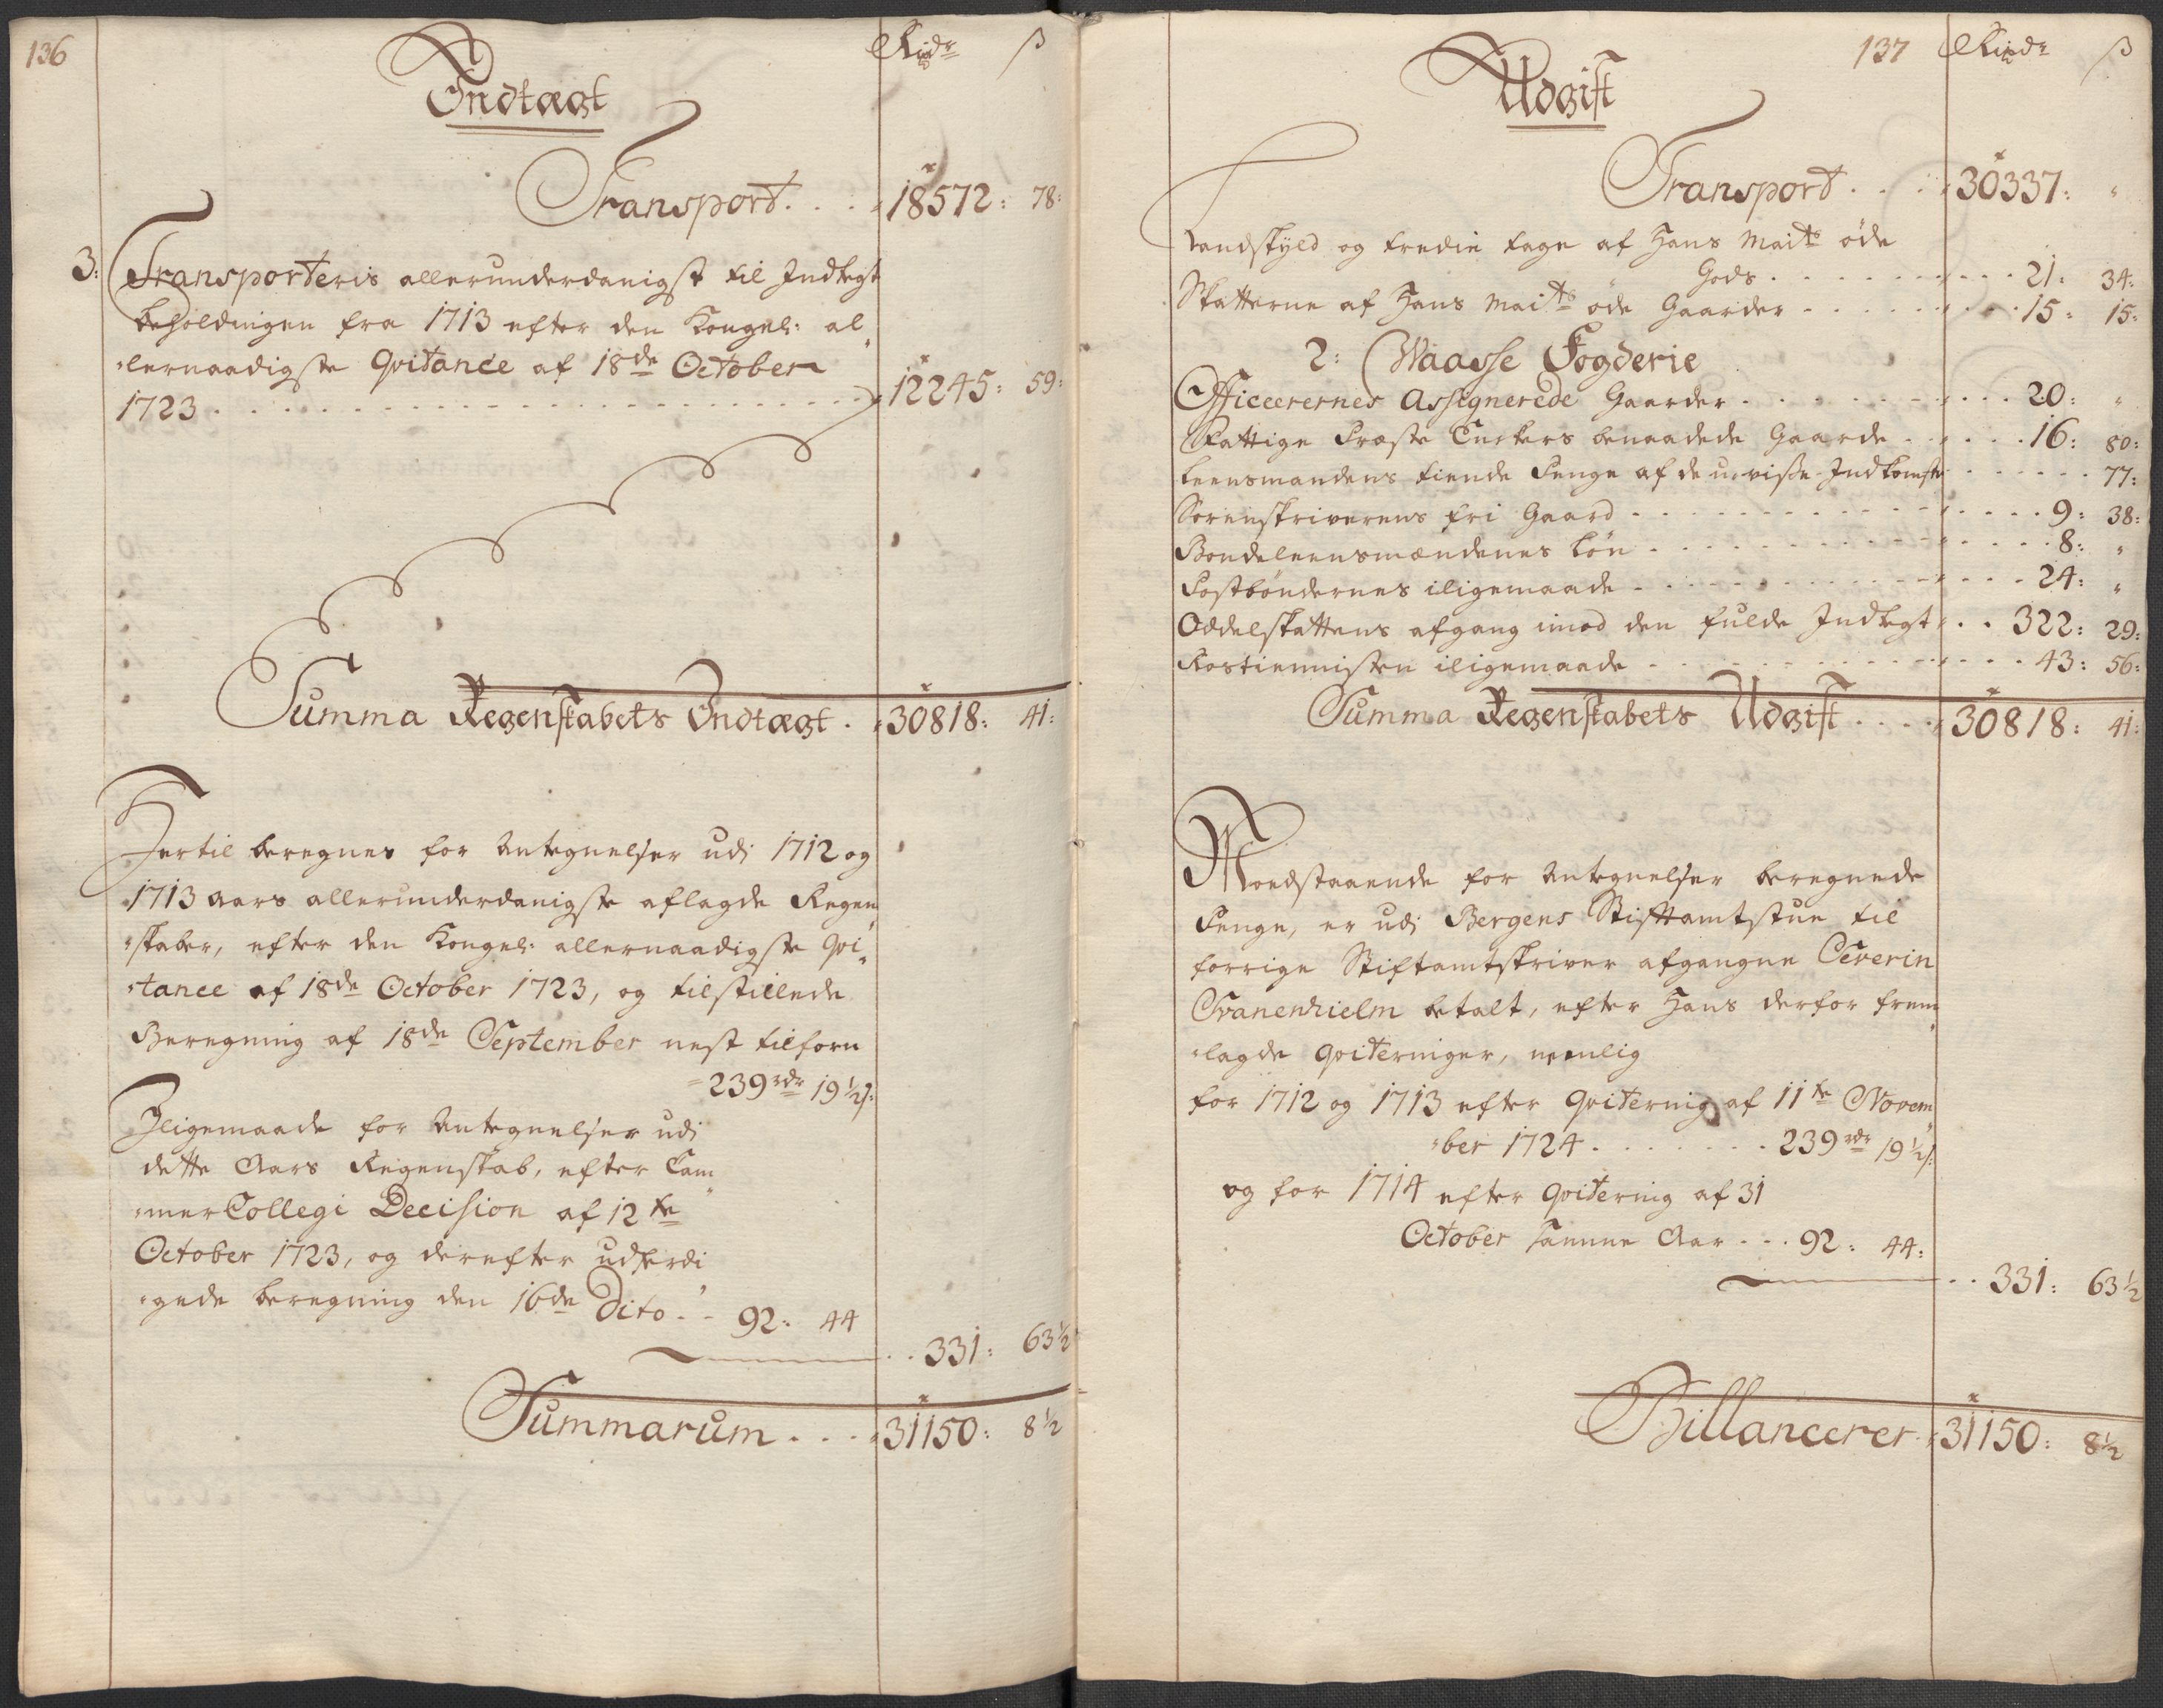 136
Rixdr ß
Indtægt
Transport . . . 18572: 78:
3: Transporteris allerunderdanigst til Indtegt
beholdingen fra 1713 efter den Kongel: al
lernaadigste Qvitance af 18de October
1723 . . . 12245: 59:
Summa Regenskabets Indtægt . 30818: 41:
Hertil beregnes for Antegnelser udi 1712 og
1713 Aars allerunderdanigste aflagde Regen
skaber, efter den Kongel: allernaadigste Qvi
tance af 18de October 1723, og tilstillede
Beregning af 18de September nest tilforn
239rdr 19½ß:
Iligemaade for Antegnelser udi
dette Aars Regenskab, efter Cam
mer Collegi Decision af 12te
October 1723, og derefter udferdi
gede beregning den 16de Dito . . 92: 44
. . 331: 63½
Summarum . . . 31150: 8½
137 Rixdr ß
Udgift
Transport . . . 30337: "
Landskyld og tredie tage af Hans Maits øde
Gods . . . 21: 34:
Skatterne af Hans Maits øde Gaarder . . . 15: 15:
2: Waasse Fogderie
Officerernes Assignerede Gaarder . . . 20: "
Fattige Præste Enckers benaadede Gaarde . . . 16: 80:
Leensmandens tiende Penge af de uvisse Indkomster . . . 77:
Sorenskriverens fri Gaard . . . 9: 38:
Bondeleensmændenes Løn . . . 8: "
Postbøndernes iligemaade . . . 24: "
Oddelskattens afgang imod den fulde Indtegt . . 322: 29:
Rostiennisten iligemaade . . . 43: 56:
Summa Regenskabets Udgift . . . 30818: 41:
Moedstaaende for Antegnelser beregnede
Penge, er udi Bergens Stiftamtstue til
forrige Stiftamtskriver afgangne Severin
Svanenhielm betalt, efter Hans derfor frem
lagde qviteringer, nemlig
for 1712 og 1713 efter qvitering af 11te Novem
ber 1724 . . . 239rdr 19½ß:
og for 1714 efter qvitering af 31
October samme Aar . . . 92: 44:
. . 331: 63½
Billancerer 31150: 8½